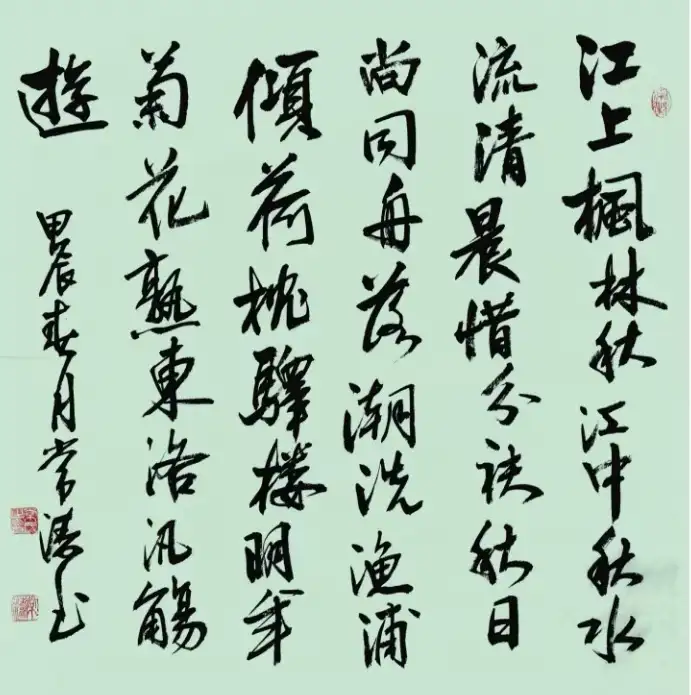 江上楓林秋江中秋水
流清晨惜分袂秋日
尚同舟落潮洗漁浦
傾荷枕驛樓明年
菊花熟東洛汎觴
遊
甲辰春月常濤書